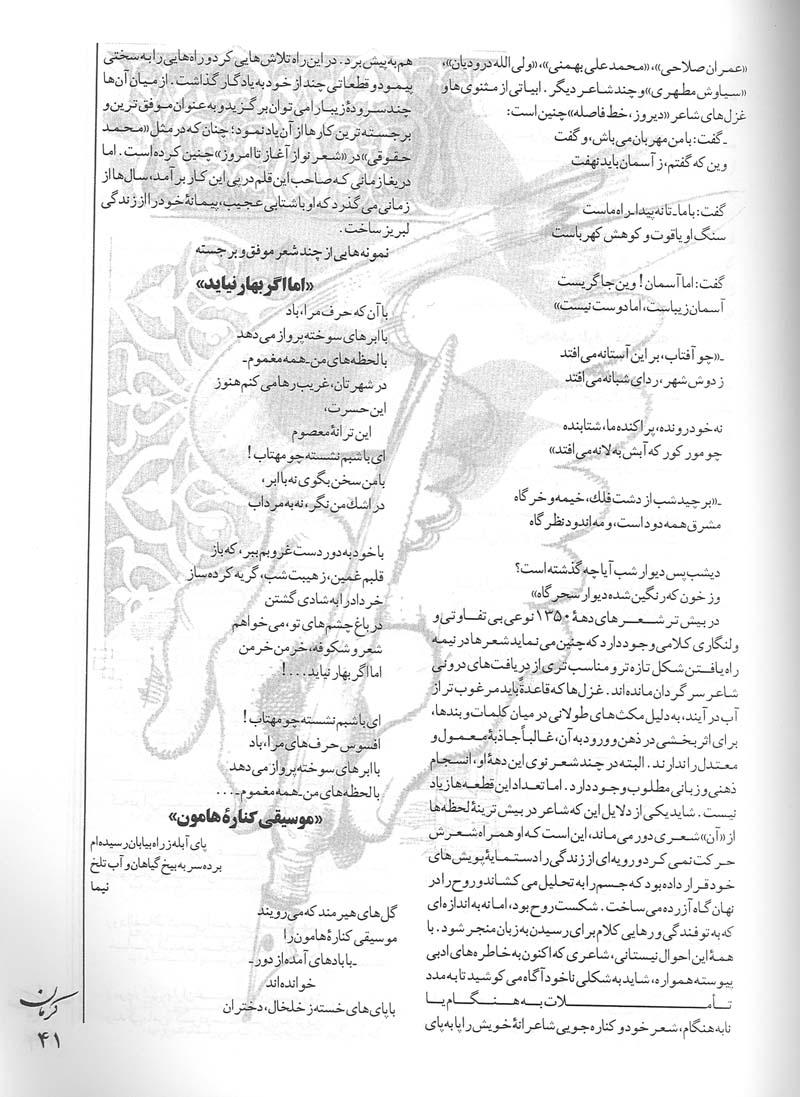 «عمران صلاحی»، «محمدعلی بهمنی»، «ولی الله درودیان»،
«سیاوش مطهری» و چند شاعر دیگر. ابیاتی از مثنوی ها و
غزل های شاعر «دیروز، خط فاصله» چنین است:
ـ گفت: با من مهربان می باش، و گفت
وین که گفتم، ز آسمان باید نهفت
گفت: با ما ـ تا نه پیدا ـ راه ماست
سنگ او یاقوت و کوهش کهرباست
گفت: اما آسمان! وین جا گریست
آسمان زیباست، اما دوست نیست»
ـ «چو آفتاب، بر این آستانه می افتد
ز دوش شهر، ردای شبانه می افتد
نه خود رونده، پراکنده ما، شتابنده
چو مور کور که آبش به لانه می افتد»
ـ «برچید شب از دشت فلك، خیمه و خرگاه
مشرق همه دود است، و مه اندود نظرگاه
دیشب پس دیوار شب آیا چه گذشته است؟
وز خون که رنگین شده دیوار سحرگاه»
در بیش تر شـعـرهای دههٔ ۱۳۵۰ نوعی بی تفاوتی و
ولنگاری کلامی وجود دارد که چنین می نماید شعرها در نیمه
راه یافـتـن شکل تازه تر و مناسب تری از دریافت های درونی
شاعر سرگردان مانده اند. غزل ها که قاعدةً باید مرغوب تر از
آب درآیند، به دلیل مکث های طولانی در میان کلمات و بندها،
برای اثربخشی در ذهن و ورود به آن، غالبـاً جاذبهٔ معمول و
معتدل را ندارند. البته در چند شعر نوی این دههٔ او، انسـجام
ذهنی و زبانی مطلوب وجود دارد. اما تعداد این قطعه ها زیاد
نیست. شاید یکی از دلایل این که شاعر در بیش ترینهٔ لحظه ها
از «آن» شعری دور می ماند، این است که او همراه شـعـرش
حرکت نمی کرد و رویه ای از زندگی را دسـتـمـایهٔ پویش های
خود قرار داده بود که جسم را به تحلیل می کشاند و روح را در
نهان گاه آزرده می ساخت. شکست روح بود، اما نه به اندازه ای
که به توفندگی و رهایی کلام برای رسیدن به زبان منجر شود. با
همهٔ این احوال نیستانی، شاعری که اکنون به خاطره های ادبی
پیوسته همواره، شاید به شکلی ناخودآگاه می کوشید تا به مدد
تـأمــــــــــلات بـه هـنـگـام یـا
نابه هنگام، شعر خود و کناره جویی شاعرانهٔ خویش را پا به پای
هم به پیش برد. در این راه تلاش هایی کرد و راه هایی را به سختی
پیمود و قطعاتی چند از خود به یادگار گذاشت. از میان آن ها
چند سرودهٔ زیبا را می توان برگزید و به عنوان موفق ترین و
برجسته ترین کارها از آن یاد نمود؛ چنان که در مثل «محمد
حقوقی» در «شعر نو از آغاز تا امروز» چنین کرده است. اما
دریغا زمانی که صاحب این قلم در پی این کار برآمد، سال ها از
زمانی می گذرد که او با شتابی عجیب، پیمانهٔ خود را از زندگی
لبریز ساخت.
نمونه هایی از چند شعر موفق و برجسته
«اما اگر بهار نیاید»
با آن که حرف مرا، باد
با ابرهای سوخته پرواز می دهد
با لحظه های من ـ همه مغموم ـ
در شهرتان، غریب رها می کنم هنوز
این حسرت،
این ترانهٔ معصوم
ای با شبم نشسته چو مهتاب!
با من سخن بگوی نه با ابر،
در اشك من نگر، نه به مرداب
با خود به دوردست غروبم ببر، که باز
قلبم غمین، ز هیبت شب، گریه کرده ساز
خرداد را به شادی گشتن
در باغ چشم های تو، می خواهم
شعر و شکوفه، خرمن خرمن
اما اگر بهار نیاید . . . !
ای با شبم نشسته چو مهتاب!
افسوس حرف های مرا، باد
با ابرهای سوخته پرواز می دهد
با لحظه های من ـ همه مغموم ـ . . .
«موسیقی کنارهٔ هامون»
پای آبله ز راه بیابان رسیده ام
برده سر به بیخ گیاهان و آب تلخ
نیما
گل های هیرمند که می رویند
موسیقی کنارهٔ هامون را
ـ با بادهای آمده از دور ـ
خوانده اند
با پای های خسته ز خلخال، دختران
کرمان
۴۱